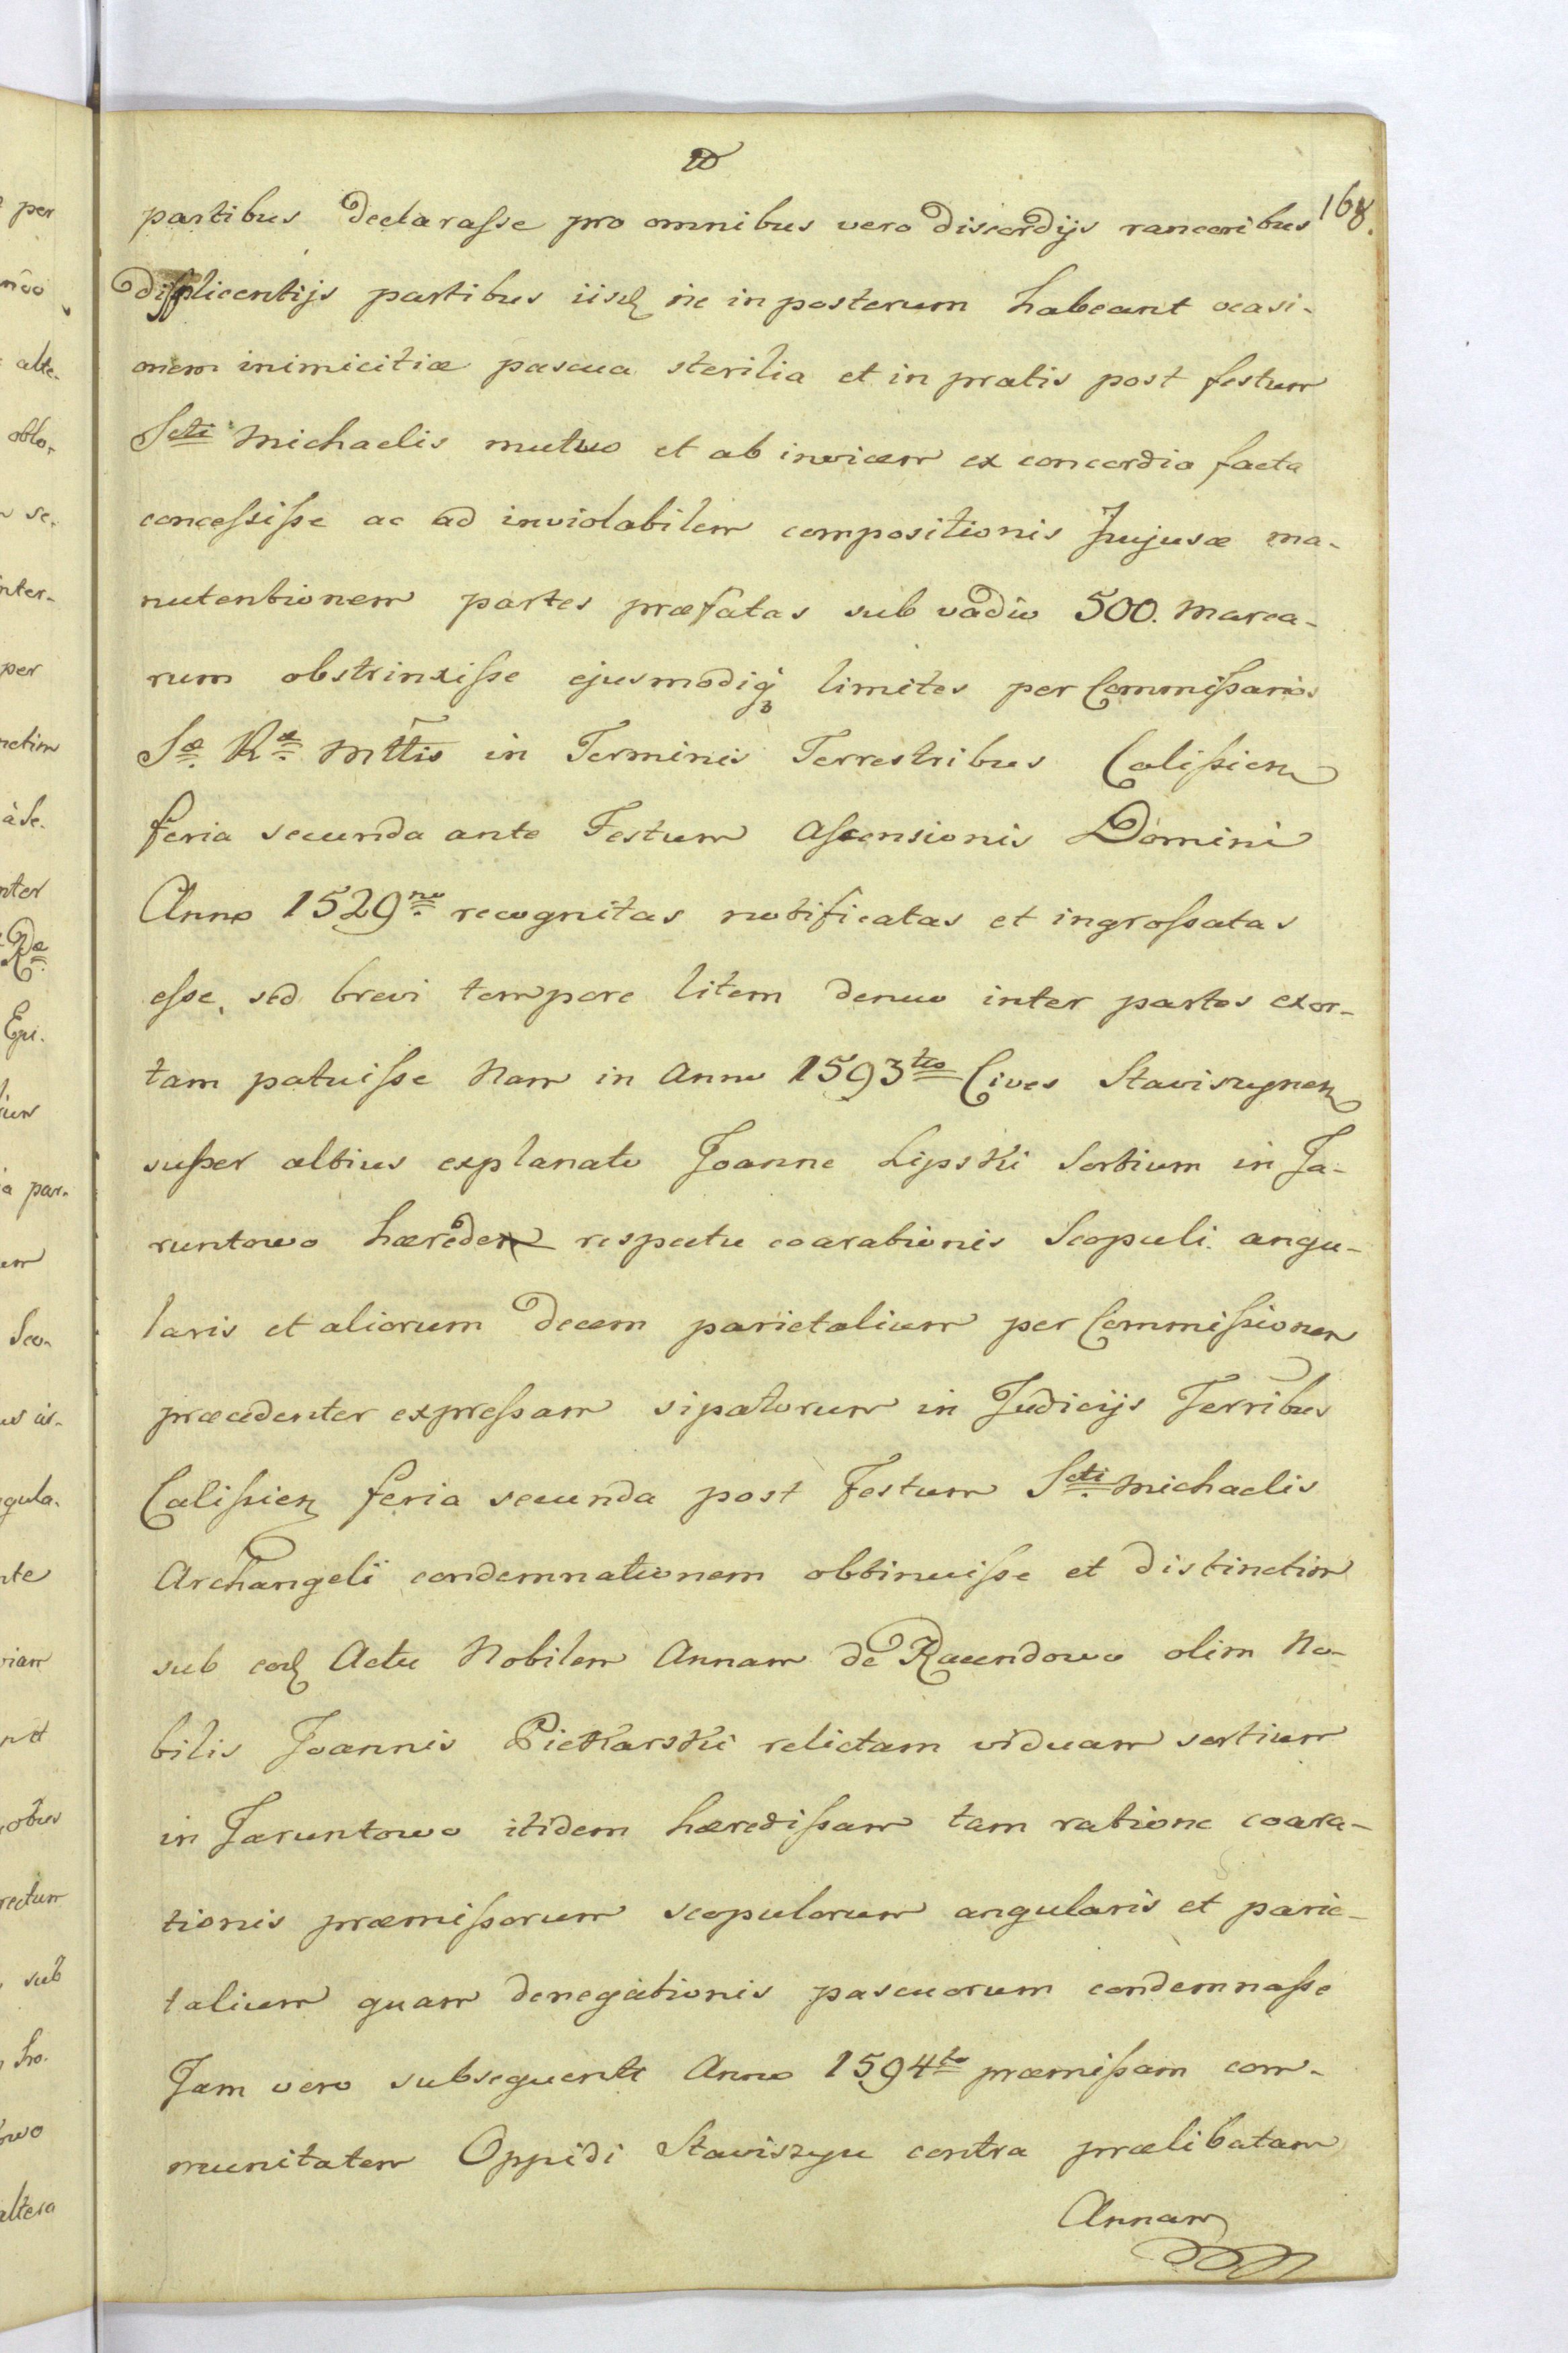 168.
partibus declarasse pro omnibus vero discordijs rancoribus
displicentijs partibus iisd ne in posterum habeant ocasi-
onem inimicitiæ pascua sterilia et in pratis post festum
Scti Michaelis mutuo et ab invicem ex concordia facta
concessisse ac ad inviolabilem compositionis hujusce ma-
nutentionem partes præfatas sub vadio 500. Marca-
rum obstrinxisse ejusmodiq limites per Commissarios
Sæ Ræ Mttis in Terminis Terrestribus Calissien
feria secunda ante Festum Ascensionis Domini
Anno 1529no recognitas notificatas et ingrossatas
esse, sed brevi tempore litem denuo inter partes exor-
tam patuisse Nam in Anno 1593tio Cives Stawiszynen
super altius explanato Joanne Lipski Sortium in Ja-
runtowo hærede respectu coarationis Scopuli angu-
laris et aliorum decem parietalium per Commissionem
præcedenter expressam sipatorum in Judicijs Terribus
Calissien feria secunda post Festum Scti Michaelis
Archangeli condemnationem obtinuisse et distinctim
sub eod Actu Nobilem Annam de Racendowo olim No-
bilis Joannis Piekarski relictam viduam sortium
in Jaruntowo itidem hæredissam tam ratione coara-
tionis præmissorum scopulorum angularis et parie-
talium quam denegationis pascuorum condemnasse
Jam vero subsequenti Anno 1594to præmissam com-
munitatem Oppidi Stawiszyn contra prælibatam
Annam
per
alte-
oblo-
se-
nter-
per
nctim
à se.
nter
Epi.
a par-
Sco-
gula-
nte
viam
obus
rectum
sub
altera